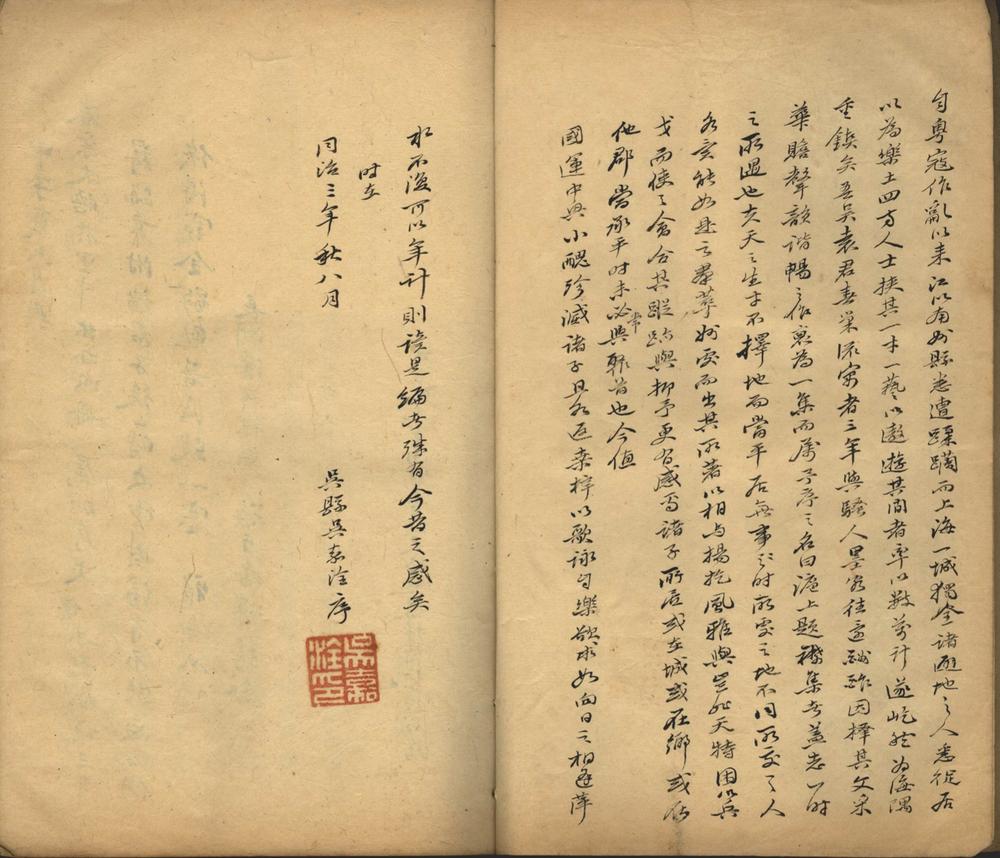 自粵寇作亂以來江以南州縣悉遭蹂躪而上海一城獨全諸避地之人悉從居
以為樂土四方人士挾其一才一藝以遨遊其間者率以數萬計遂屹然為海隅
重鎮矣吾吳袁君春巢流寓者三年與騷人墨客往還酬酢因擇其文采
華贍聲韻諧暢之作裒為一集而屬予序之名曰滬上題襟集者蓋志一時
之所遇也夫天之生才不擇地而當平居無事之時所處之地不同所交之人
各異能如是之羣萃州處而出其所著以相與揚扢風雅與豈非天特困以兵
戈而使之會合其蹤跡與抑予更有感焉諸子所居或在城或在鄉或居
他郡當承平時未必常與聚首也今值
國運中興小醜殄滅諸子且各返桑梓以歌詠自樂欲求如向日之相逢萍
水不復可以年計則讀是編者殊有今昔之感矣
時在
同治三年秋八月
吳縣吳嘉洤序
吳嘉洤印